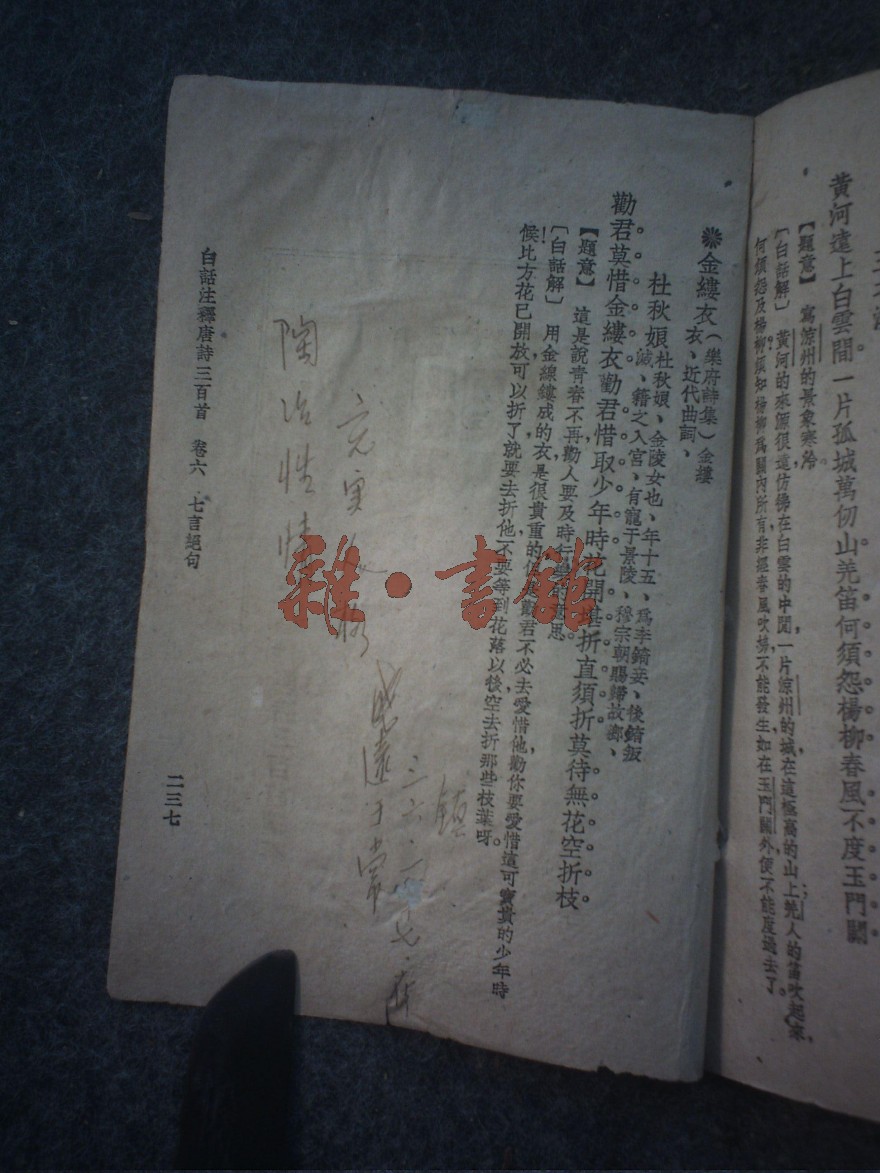 黃河遠上白雲間。一片孤城萬仞山羌笛何須怨楊柳春風不度玉門關
【題意】 寫涼州的景象寒冷
〔白話解〕 黃河的來源很遠仿彿在白雲的中間一片涼州的城在這極高的山上羌人的笛吹起來,
何須怨及楊柳須知楊柳爲關內所有非經春風吹拂不能發生如在玉門關外便不能度過去了。
❋金縷衣(樂府詩集)金縷
衣、近代曲詞、
杜秋娘杜秋娘、金陵女也、年十五、爲李錡妾、後錡叛
滅、籍之入宮、有寵于景陵、穆宗朝賜歸故鄉、
勸君莫惜金縷衣勸君惜取少年時花開堪折直須折莫待無花空折枝。
【題意】 這是說青春不再勸人要及時行
思
〔白話解〕 用金線縷成的衣是很貴重的
勸君不必去愛惜他勸你要愛惜這可寶貴的少年時
候比方花已開放可以折了就要去折他不要等到花落以後空去折那些枝葉呀。
鎮
三六·
充實
陶冶性情
白話注釋唐詩三百首 卷六 七言絕句
二三七
雜·書館